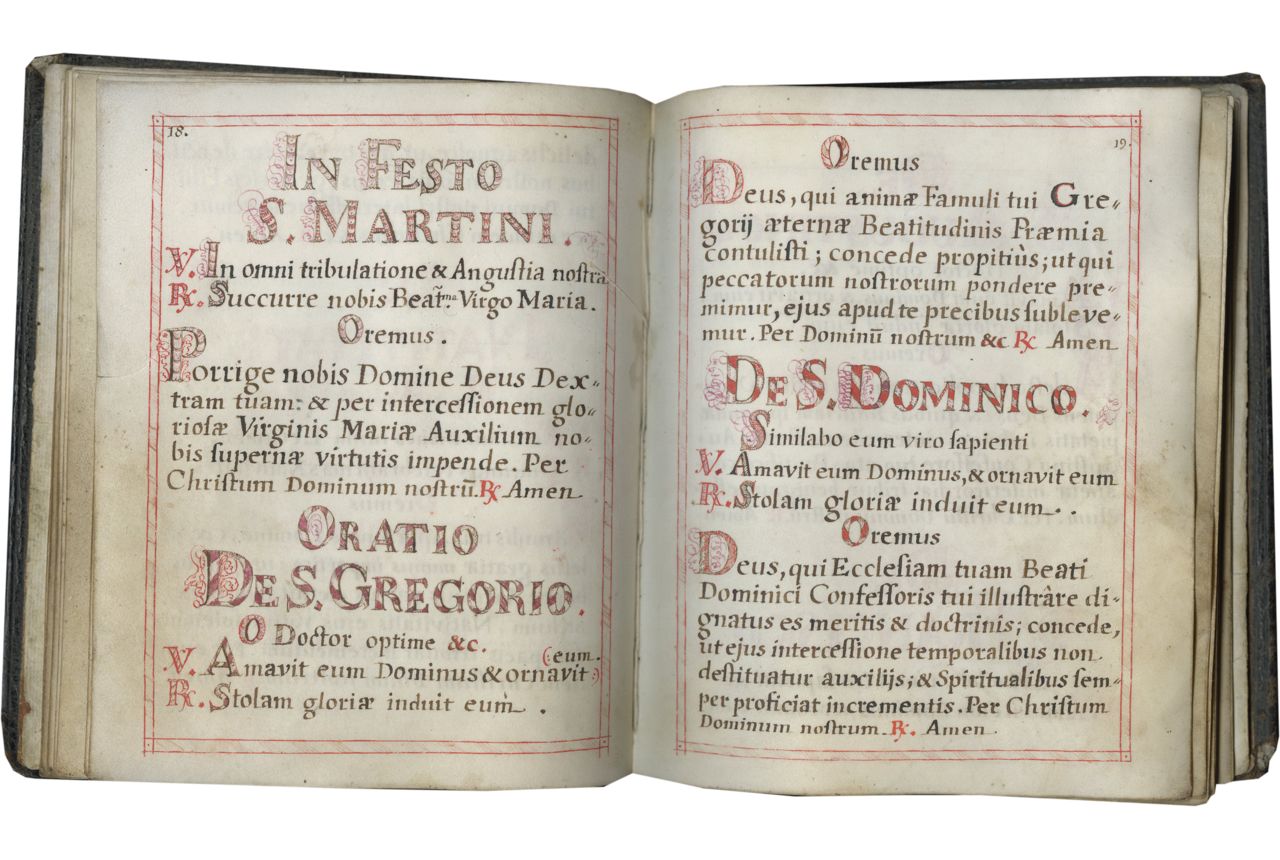 18.
IN FESTO
S. MARTINI.
℣. In omni tribulatione & Anguſtia noſtra
℟. Succurre nobis Beat̃ma. Virgo Maria.
Oremus.
Porrige nobis Domine Deus Dex=
tram tuam: & per interceſſionem glo=
rioſæ Virginis Mariæ Auxilium no=
bis ſupernæ virtutis impende. Per
Chriſtum Dominum noſtrū. ℟. Amen
ORATIO
DE S. GREGORIO.
O Doctor optime &c.
(: eum.
℣. Amavit eum Dominus & ornavit :)
℟. Stolam gloriæ induit eum̀ .
19.
Oremus
Deus, qui animæ Famuli tui Gre=
gorij æternæ Beatitudinis Præmia
contuliſti; concede propitiùs; ut qui
peccatorum noſtrorum pondere pre=
mimur, ejus apud te precibus ſubleve=
mur. Per Dominū noſtrum &c ℟. Amen
DE S. DOMINICO.
Similabo eum viro ſapienti
℣. Amavit eum Dominus, & ornavit eum
℟. Stolam gloriæ induit eum . .
Oremus
Deus, qui Eccleſiam tuam Beati
Dominici Confeſſoris tui illuſtrâre di=
gnatus es meritis & doctrinis; concede,
ut ejus interceſſione temporalibus non
deſtituatur auxilijs; & Spiritualibus ſem=
per proficiat incrementis. Per Chriſtum
Dominum noſtrum. ℟. Amen.